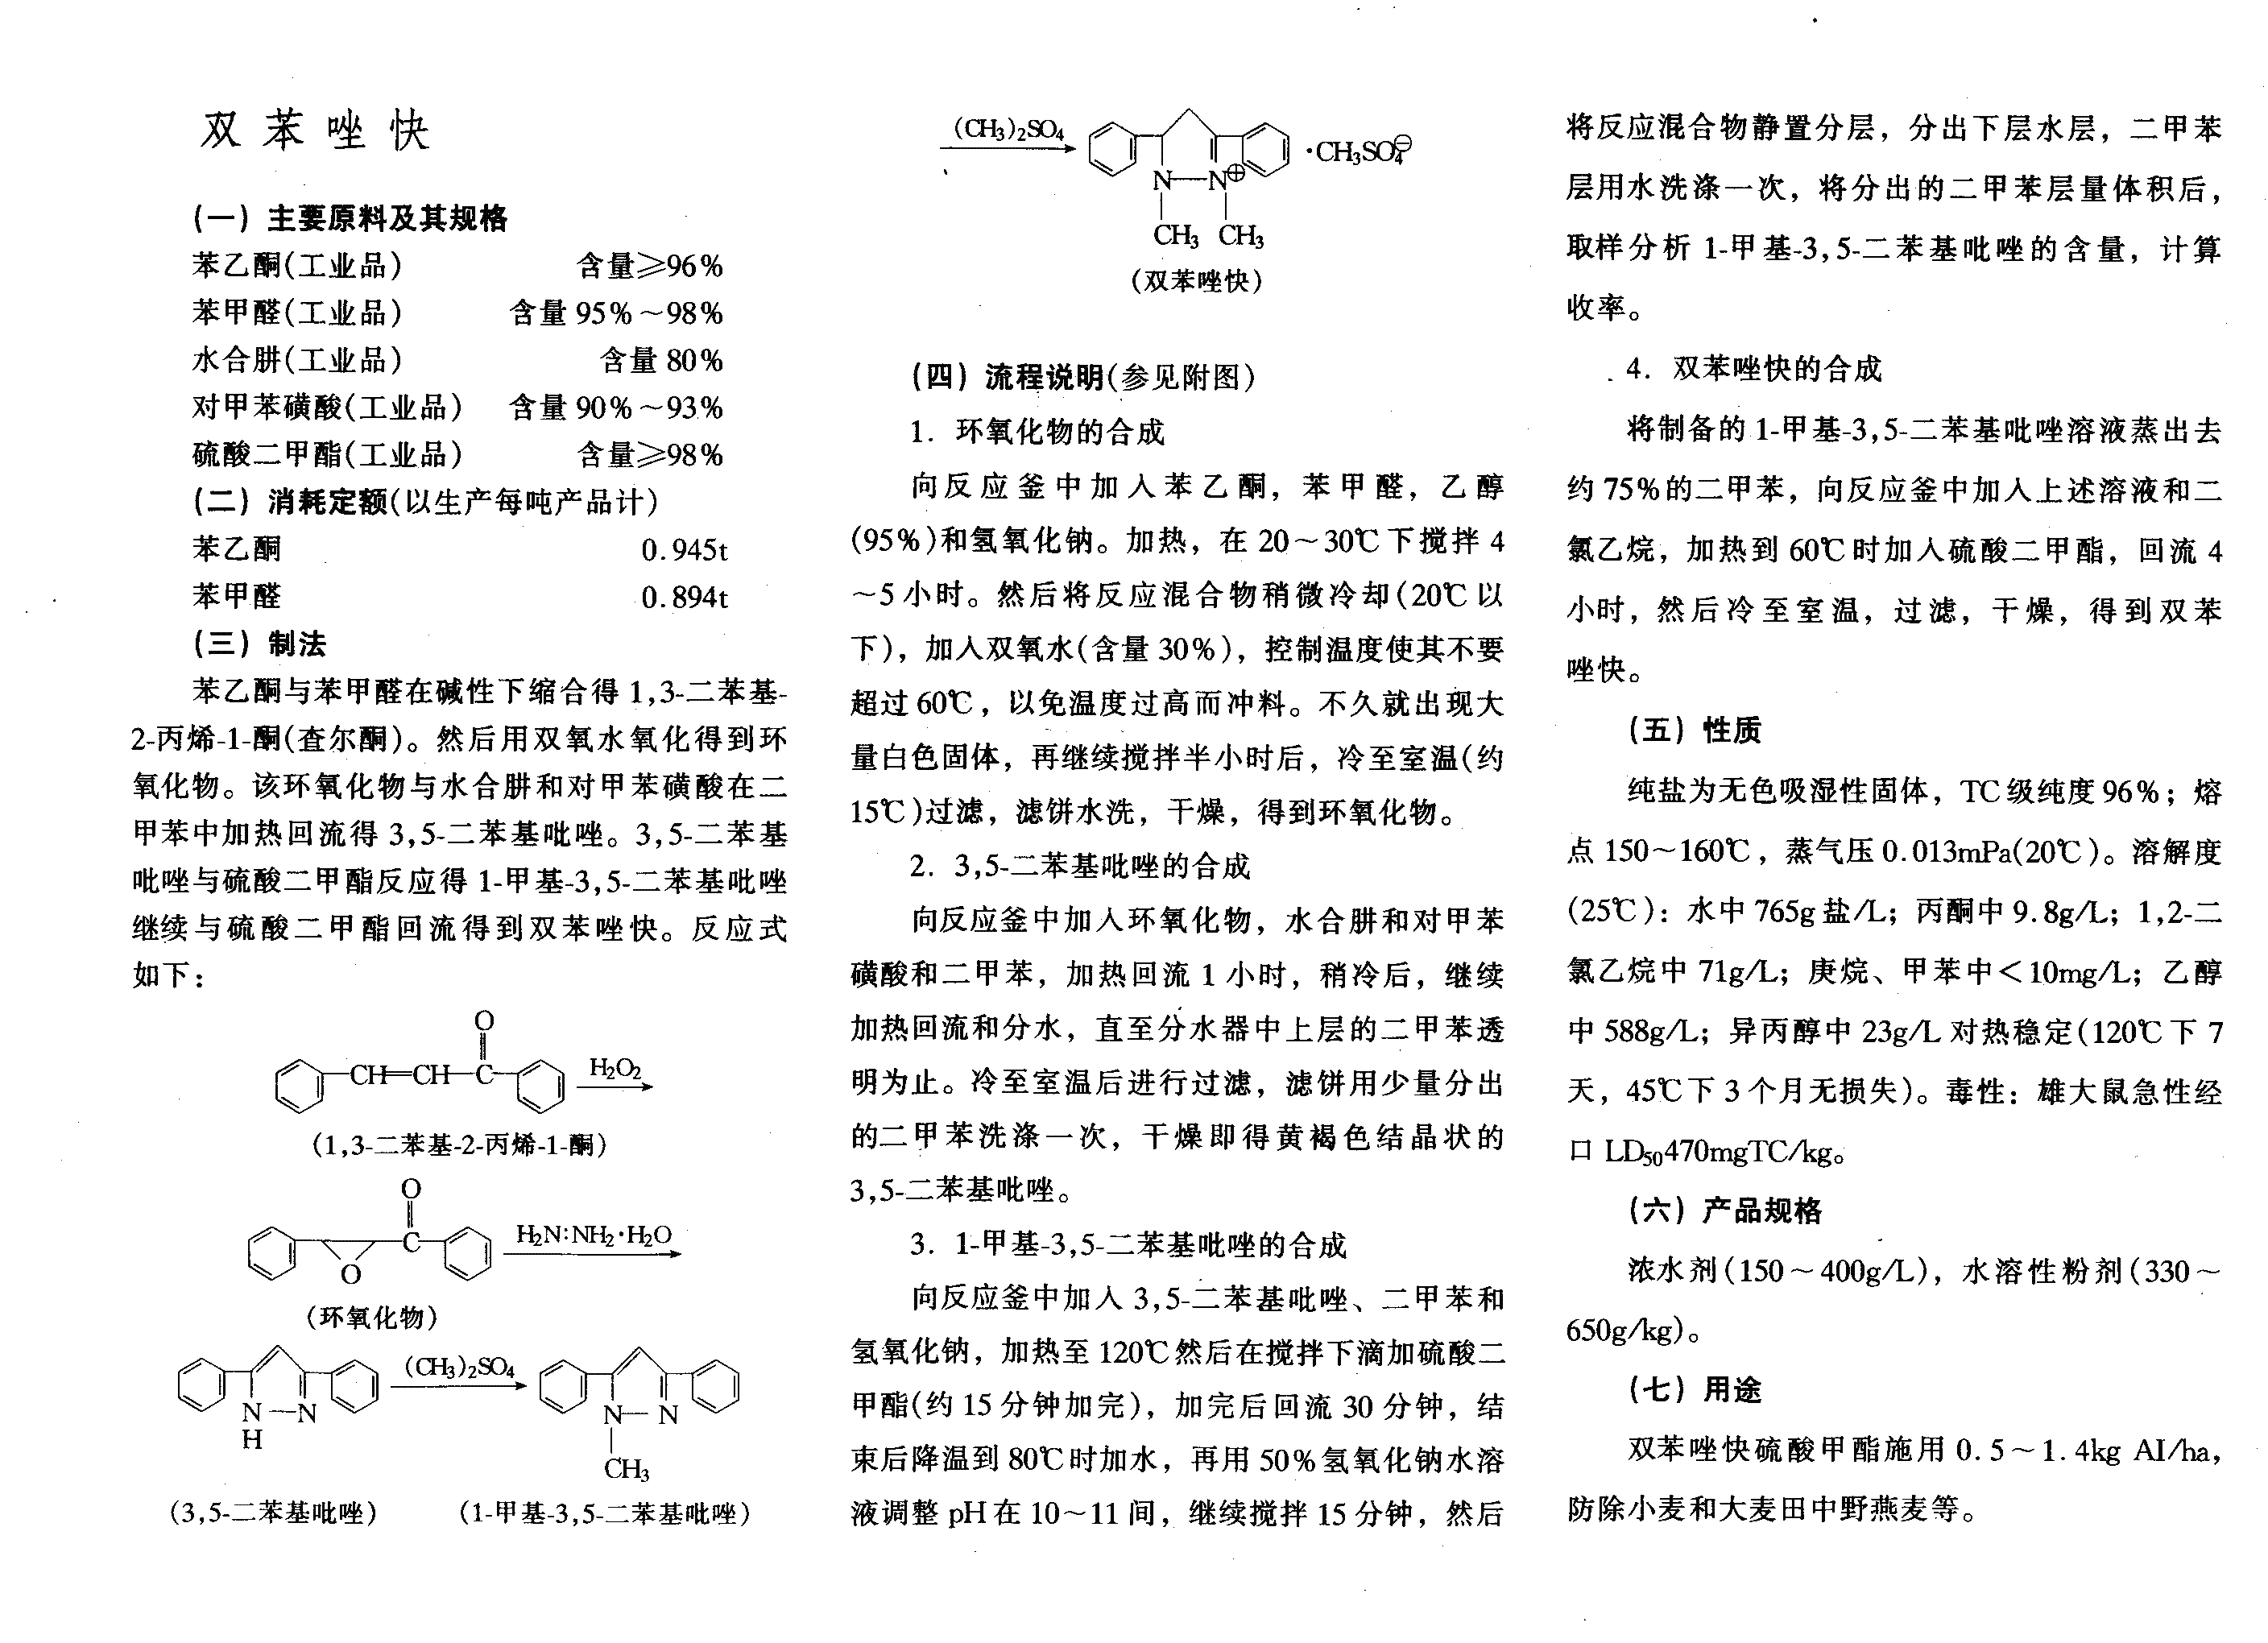 双苯唑快
(一) 主要原料及其规格
苯乙酮(工业品) 含量≥96%
苯甲醛(工业品) 含量 95%～98%
水合肼(工业品) 含量 80%
对甲苯磺酸(工业品) 含量 90%～93%
硫酸二甲酯(工业品) 含量≥98%
(二) 消耗定额(以生产每吨产品计)
苯乙酮 0.945t
苯甲醛 0.894t
(三) 制法
苯乙酮与苯甲醛在碱性下缩合得 1,3-二苯基-
2-丙烯-1-酮(查尔酮)。然后用双氧水氧化得到环
氧化物。该环氧化物与水合肼和对甲苯磺酸在二
甲苯中加热回流得 3,5-二苯基吡唑。3,5-二苯基
吡唑与硫酸二甲酯反应得 1-甲基-3,5-二苯基吡唑
继续与硫酸二甲酯回流得到双苯唑快。反应式
如下：
O
CH=CH—C
H₂O₂
(1,3-二苯基-2-丙烯-1-酮)
O
C
O
H₂N:NH₂·H₂O
(环氧化物)
(CH₃)₂SO₄
N—N
H
N—N
CH₃
(3,5-二苯基吡唑) (1-甲基-3,5-二苯基吡唑)
(CH₃)₂SO₄
·CH₃SO₄⊖
N—N⊕
CH₃ CH₃
(双苯唑快)
(四) 流程说明(参见附图)
1. 环氧化物的合成
向反应釜中加入苯乙酮，苯甲醛，乙醇
(95%)和氢氧化钠。加热，在 20～30℃下搅拌 4
～5 小时。然后将反应混合物稍微冷却(20℃以
下)，加入双氧水(含量 30%)，控制温度使其不要
超过 60℃，以免温度过高而冲料。不久就出现大
量白色固体，再继续搅拌半小时后，冷至室温(约
15℃)过滤，滤饼水洗，干燥，得到环氧化物。
2. 3,5-二苯基吡唑的合成
向反应釜中加入环氧化物，水合肼和对甲苯
磺酸和二甲苯，加热回流 1 小时，稍冷后，继续
加热回流和分水，直至分水器中上层的二甲苯透
明为止。冷至室温后进行过滤，滤饼用少量分出
的二甲苯洗涤一次，干燥即得黄褐色结晶状的
3,5-二苯基吡唑。
3. 1-甲基-3,5-二苯基吡唑的合成
向反应釜中加入 3,5-二苯基吡唑、二甲苯和
氢氧化钠，加热至 120℃然后在搅拌下滴加硫酸二
甲酯(约 15 分钟加完)，加完后回流 30 分钟，结
束后降温到 80℃时加水，再用 50%氢氧化钠水溶
液调整 pH 在 10～11 间，继续搅拌 15 分钟，然后
将反应混合物静置分层，分出下层水层，二甲苯
层用水洗涤一次，将分出的二甲苯层量体积后，
取样分析 1-甲基-3,5-二苯基吡唑的含量，计算
收率。
4. 双苯唑快的合成
将制备的 1-甲基-3,5-二苯基吡唑溶液蒸出去
约 75%的二甲苯，向反应釜中加入上述溶液和二
氯乙烷，加热到 60℃时加入硫酸二甲酯，回流 4
小时，然后冷至室温，过滤，干燥，得到双苯
唑快。
(五) 性质
纯盐为无色吸湿性固体，TC 级纯度 96%；熔
点 150～160℃，蒸气压 0.013mPa(20℃)。溶解度
(25℃)：水中 765g 盐/L；丙酮中 9.8g/L；1,2-二
氯乙烷中 71g/L；庚烷、甲苯中＜10mg/L；乙醇
中 588g/L；异丙醇中 23g/L 对热稳定(120℃下 7
天，45℃下 3 个月无损失)。毒性：雄大鼠急性经
口 LD₅₀470mgTC/kg。
(六) 产品规格
浓水剂(150～400g/L)，水溶性粉剂(330～
650g/kg)。
(七) 用途
双苯唑快硫酸甲酯施用 0.5～1.4kg AI/ha，
防除小麦和大麦田中野燕麦等。